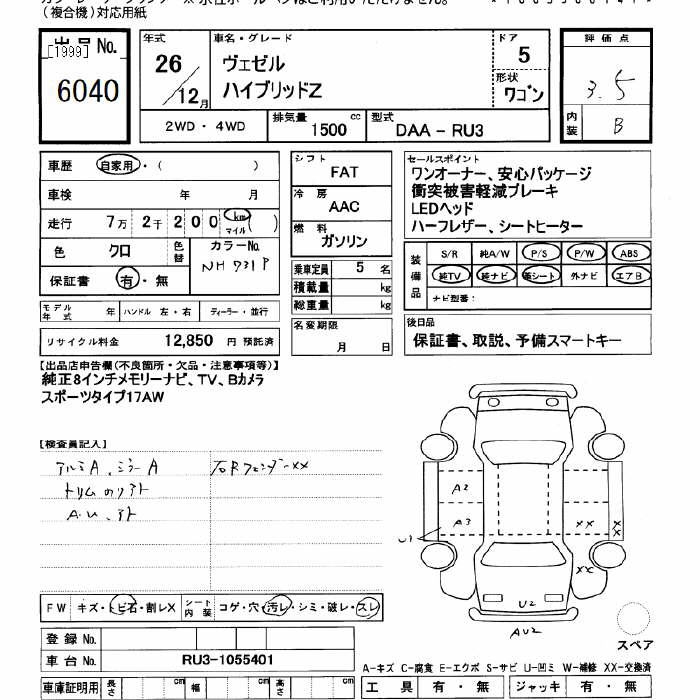 (複合機)対応用紙
出品 No.
[1999]
6040
年式
26
12月
車名・グレード
ヴェゼル
ハイブリッドZ
ドア
5
形状
ワゴン
評価点
3.5
内装
B
2WD・4WD
排気量 1500 cc
型式 DAA-RU3
車歴 自家用・( )
車検 年 月
走行 7万 2千 200 km マイル ( )
色 クロ
色替
カラーNo.
NH731P
保証書 有・無
モデル年式 年
ハンドル 左・右
ディーラー・並行
リサイクル料金 12,850 円 預託済
シフト
FAT
冷房
AAC
燃料
ガソリン
乗車定員 5 名
積載量 kg
総重量 kg
名変期限
月 日
セールスポイント
ワンオーナー、安心パッケージ
衝突被害軽減ブレーキ
LEDヘッド
ハーフレザー、シートヒーター
装備品
S/R 純A/W P/S P/W ABS
純TV 純ナビ 革シート 外ナビ エアB
ナビ型番:
後日品
保証書、取説、予備スマートキー
【出品店申告欄(不良箇所・欠品・注意事項等)】
純正8インチメモリーナビ、TV、Bカメラ
スポーツタイプ17AW
【検査員記入】
アルミA、ミラーA
トリムのリアト
A・U、アト
右Rフェンダーxx
A2
A3
U1
XX
XX
XX
U2
AU2
スペア
FW キズ・トビ石・割レX
シート内装 コゲ・穴・汚レ・シミ・破レ・スレ
登録 No.
車台 No. RU3-1055401
車庫証明用 長さ cm 幅 cm 高さ cm
A-キズ C-腐食 E-エクボ S-サビ U-凹ミ W-補修 XX-交換済
工具 有・無 ジャッキ 有・無